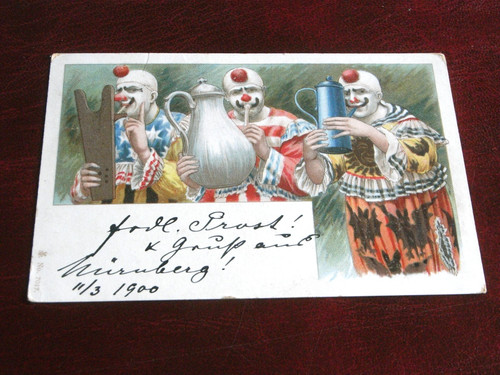 frdl. Prost!
& Gruß aus
Nürnberg!
11/3 1900